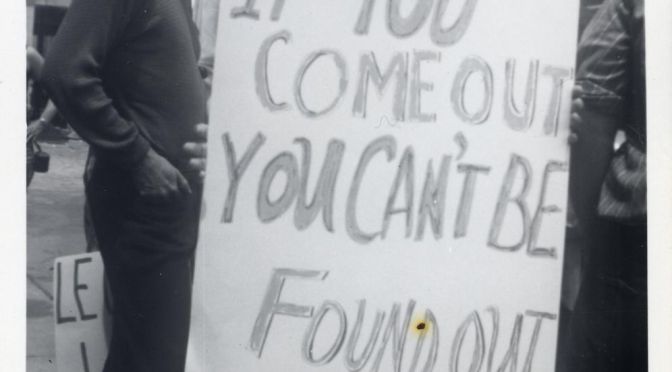 IF YOU
COME OUT
YOU CAN'T BE
FOUND OUT
LE